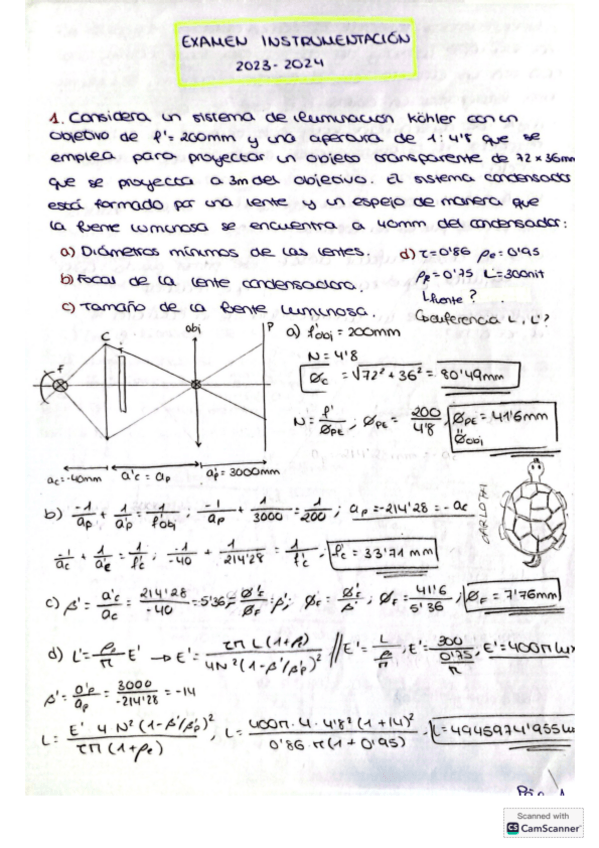 EXAMEN INSTRUMENTACIÓN
2023-2024
1. Considera un sistema de iluminación köhler con un
objetivo de f'=200mm y una apertura de 1:4'8 que se
emplea para proyectar un objeto transparente de 72×36mm
que se proyecta a 3m del objetivo. El sistema condensador
está formado por una lente y un espejo de manera que
la fuente luminosa se encuentra a 40mm del condensador:
a) Diámetros mínimos de las lentes.
b) Focal de la lente condensadora.
c) Tamaño de la fuente luminosa.
d) τ=0'86 ρe=0'95
ρR=0'75 L'=300nit
Lfuente?
L, L'?
F C i obj P
ac=-40mm a'c=ap a'p=3000mm
a) f'obj = 200mm
N = 4'8
Øc = √72²+36² = 80'49mm
N = f'/ØPE ; ØPE = 200/4'8 ; ØPE = 41'6mm
Øobj
CARLOTAI
b) -1/ap + 1/a'p = 1/f'obj ; -1/ap + 1/3000 = 1/200 ; ap=-214'28=-ac
-1/ac + 1/a'c = 1/f'c ; -1/-40 + 1/214'28 = 1/f'c ; f'c = 33'71 mm
c) β' = a'c/ac = 214'28/-40 = 5'36 = Ø'c/ØF = β' ; ØF = Ø'c/β' ; ØF = 41'6/5'36 ; ØF = 7'76mm
d) L' = ρ/π E' → E' = τπL(1+ρ)/4N²(1-β'/β'p)² // E' = L/ρ/π ; E' = 300/0'75/π ; E' = 400π lux
β' = a'p/ap = 3000/-214'28 = -14
L = E' 4 N² (1-β'/β'p)²/τπ(1+ρe) ; L = 400π·4·4'8²(1+14)²/0'86·π(1+0'95) ; L=4945974'955
Scanned with
CS CamScanner